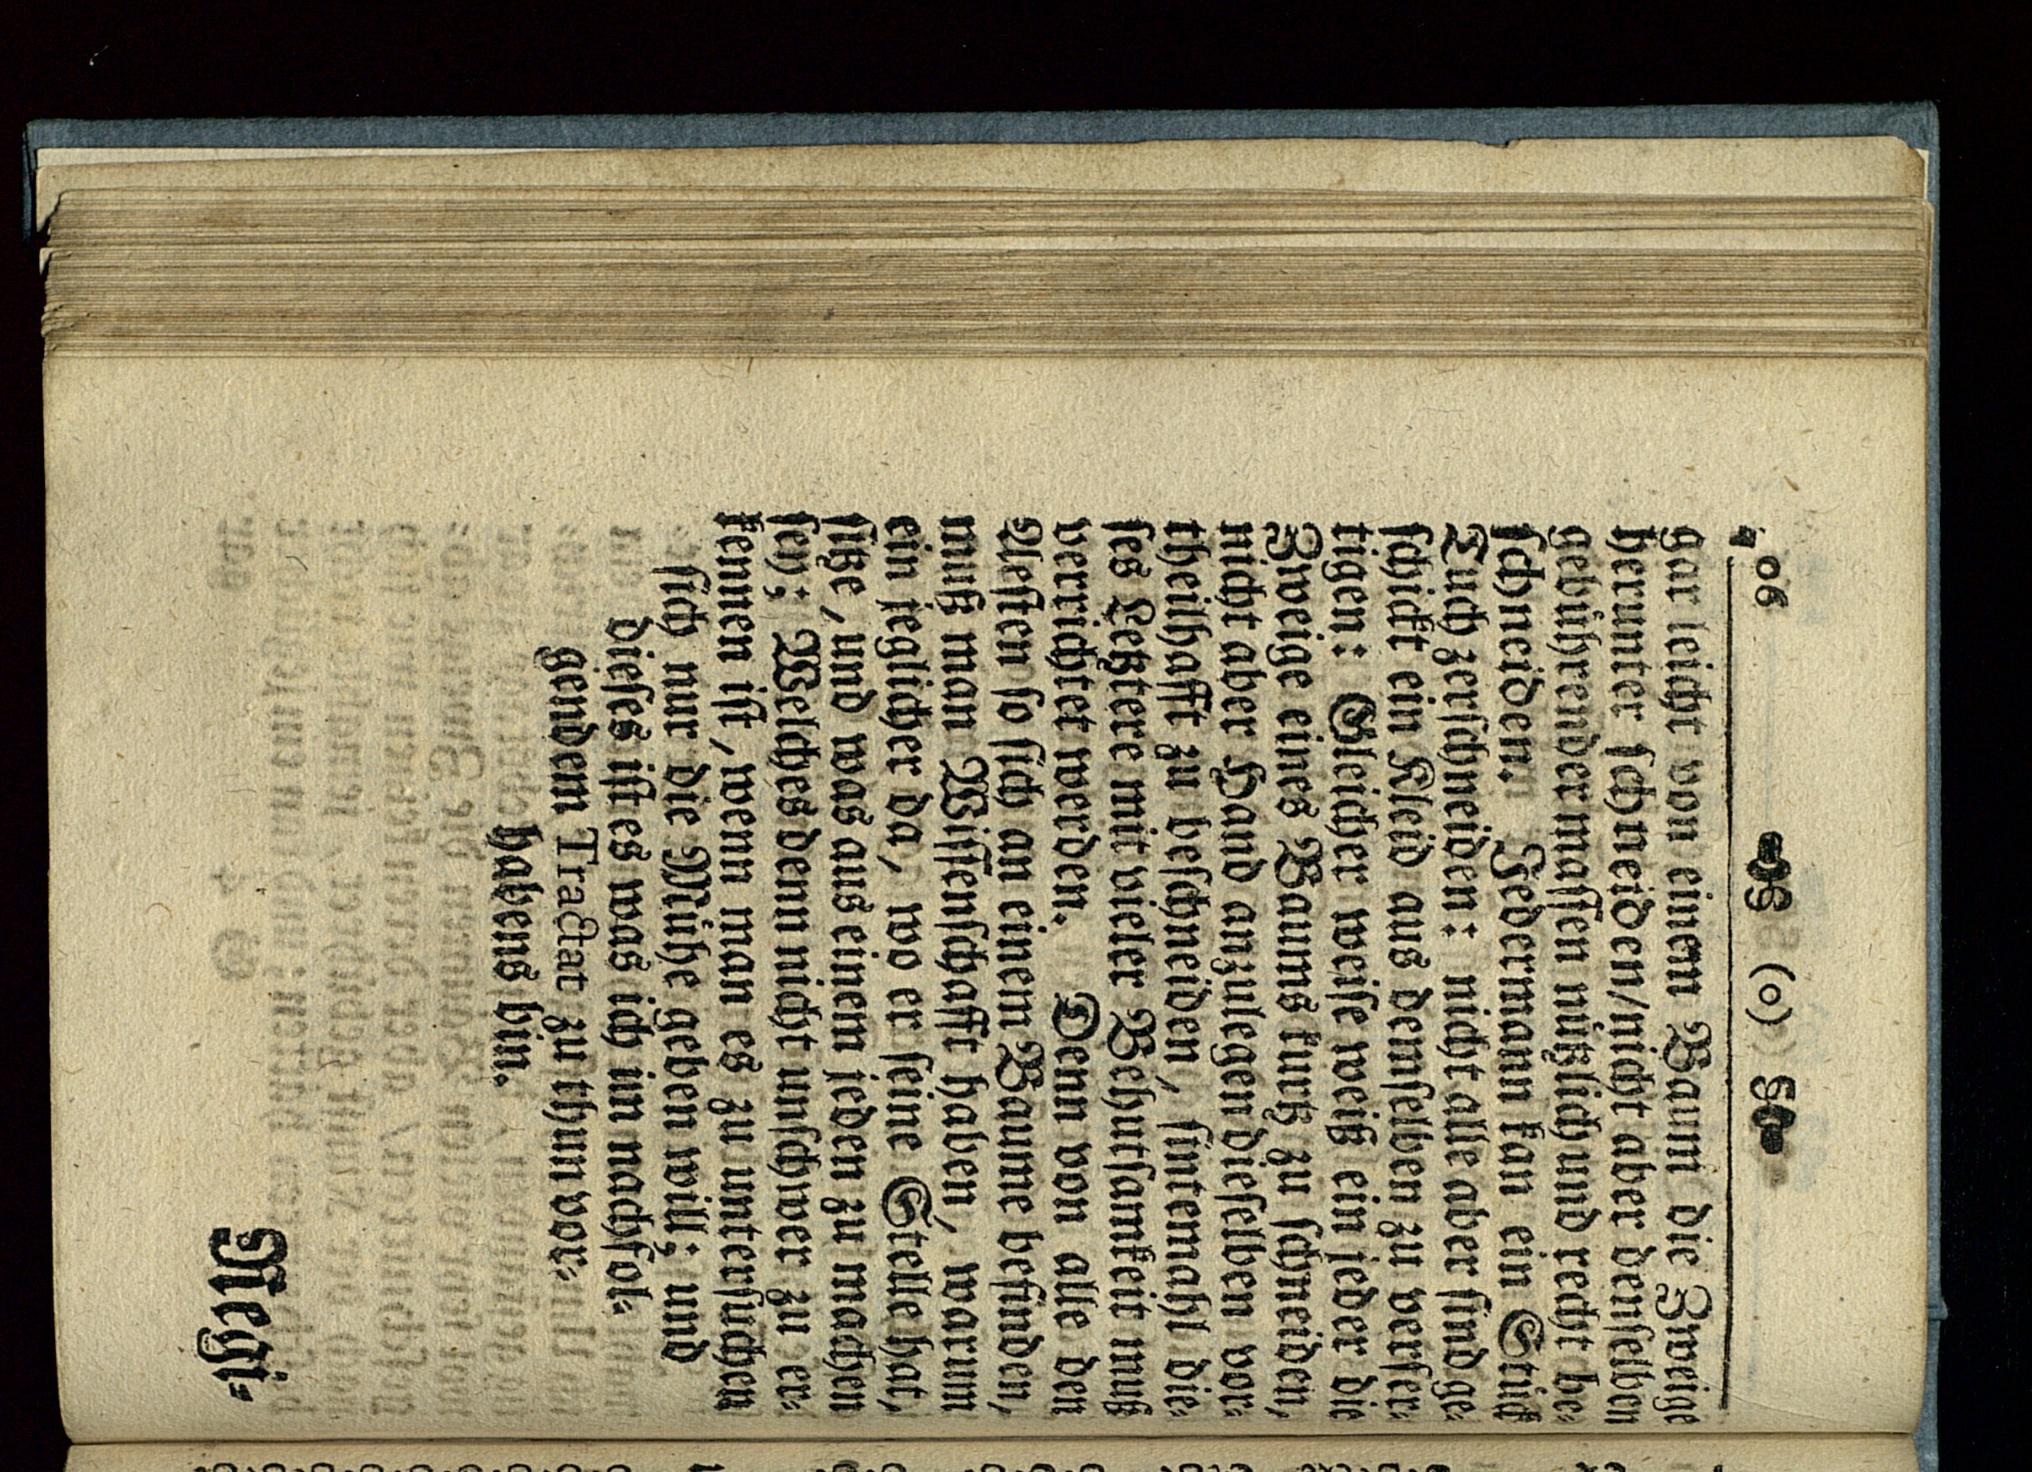 90 (o)
gar leicht von einem Baum die Zweige
herunter schneiden/ nicht aber denselben
gebührender massen nützlich und recht be-
schneiden. Jedermann kan ein Stück
Tuch zerschneiden: nicht alle aber sind ge-
schickt ein Kleid aus demselben zu verfer-
tigen: Gleicher weise weiß ein jeder die
Zweige eines Baums kurtz zu schneiden,
nicht aber Hand anzulegen dieselben vor-
theilhafft zu beschneiden, sintemahl die-
ses Letztere mit vieler Behutsamkeit muß
verrichtet werden. Denn von alle den
Aesten so sich an einem Baume befinden,
muß man Wissenschafft haben, warum
ein ieglicher da, wo er seine Stelle hat,
sitze, und was aus einem jeden zu machen
sey; Welches denn nicht unschwer zu er-
kennen ist, wenn man es zu untersuchen
sich nur die Mühe geben will; und
dieses ist es was ich in nachfol-
gendem Tractat zu thun vor-
habens bin.